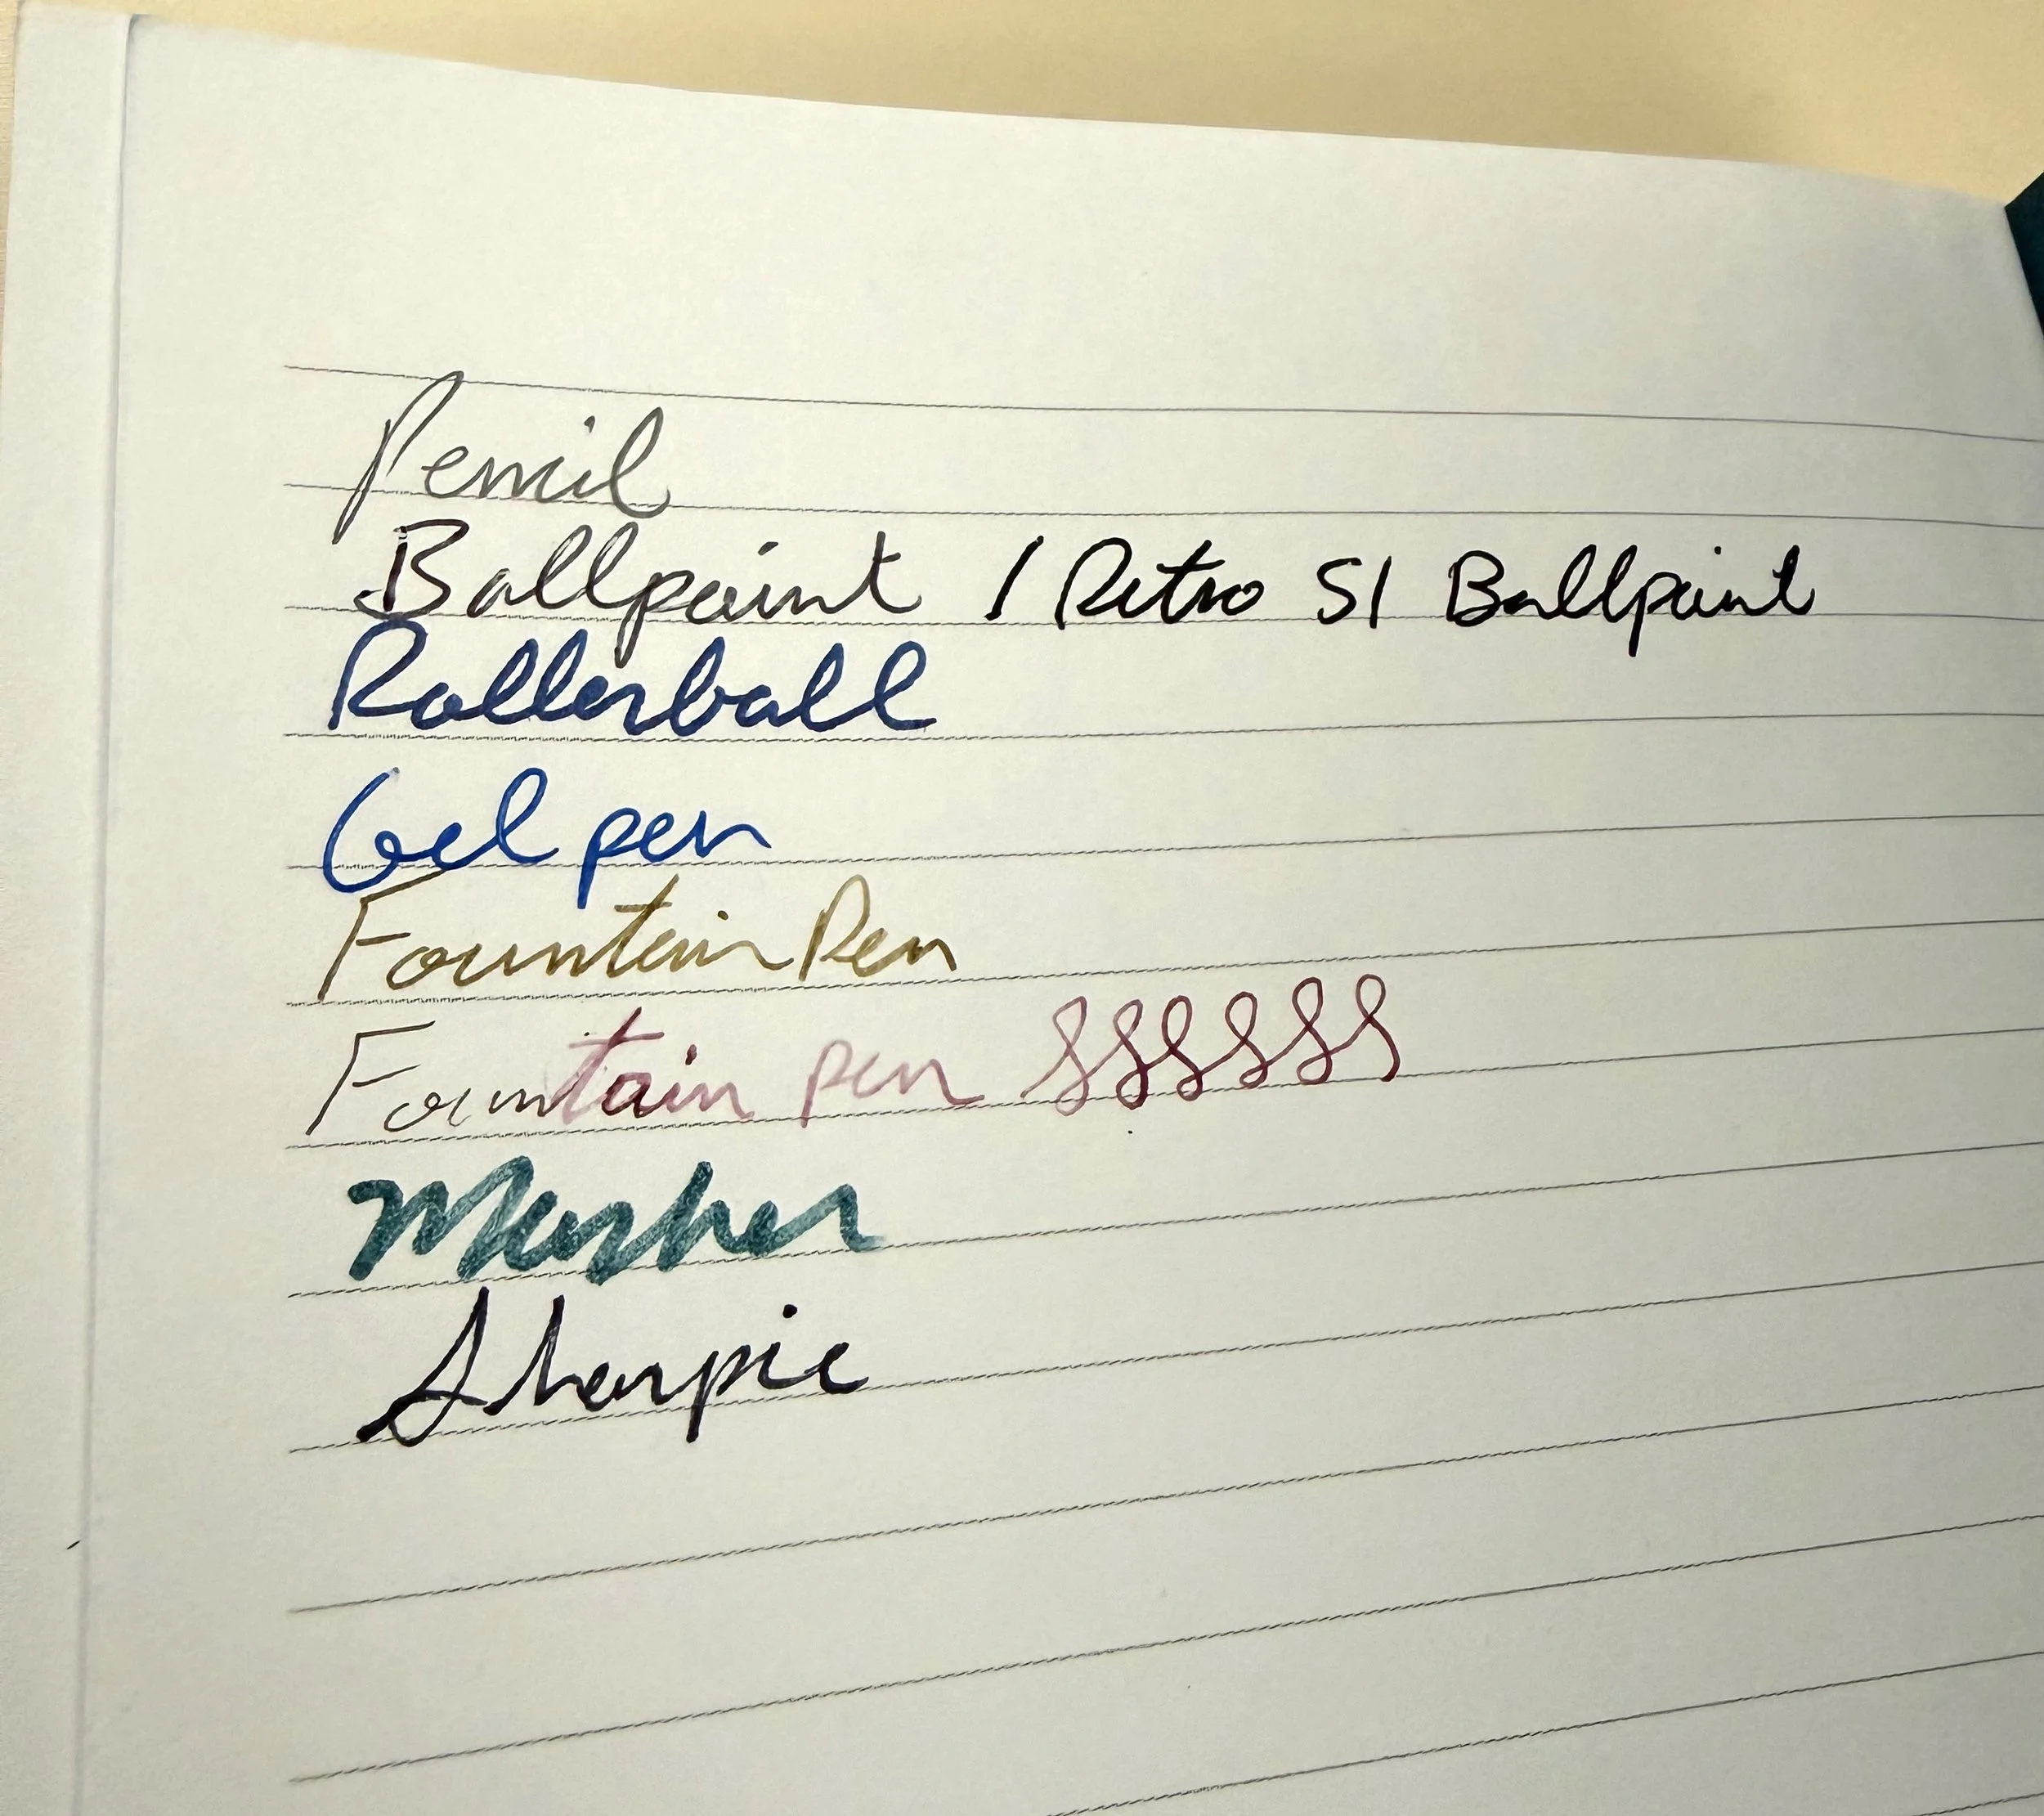 Pencil
Ballpoint / Retro 51 Ballpoint
Rollerball
Gel pen
Fountain Pen
Fountain pen
Marker
Sharpie